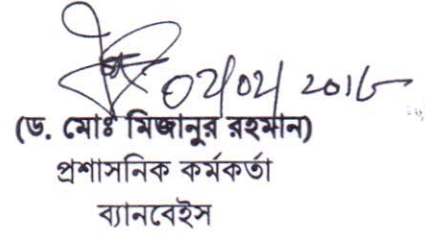 02/02/2016
(ড. মোঃ মিজানুর রহমান)
প্রশাসনিক কর্মকর্তা
ব্যানবেইস